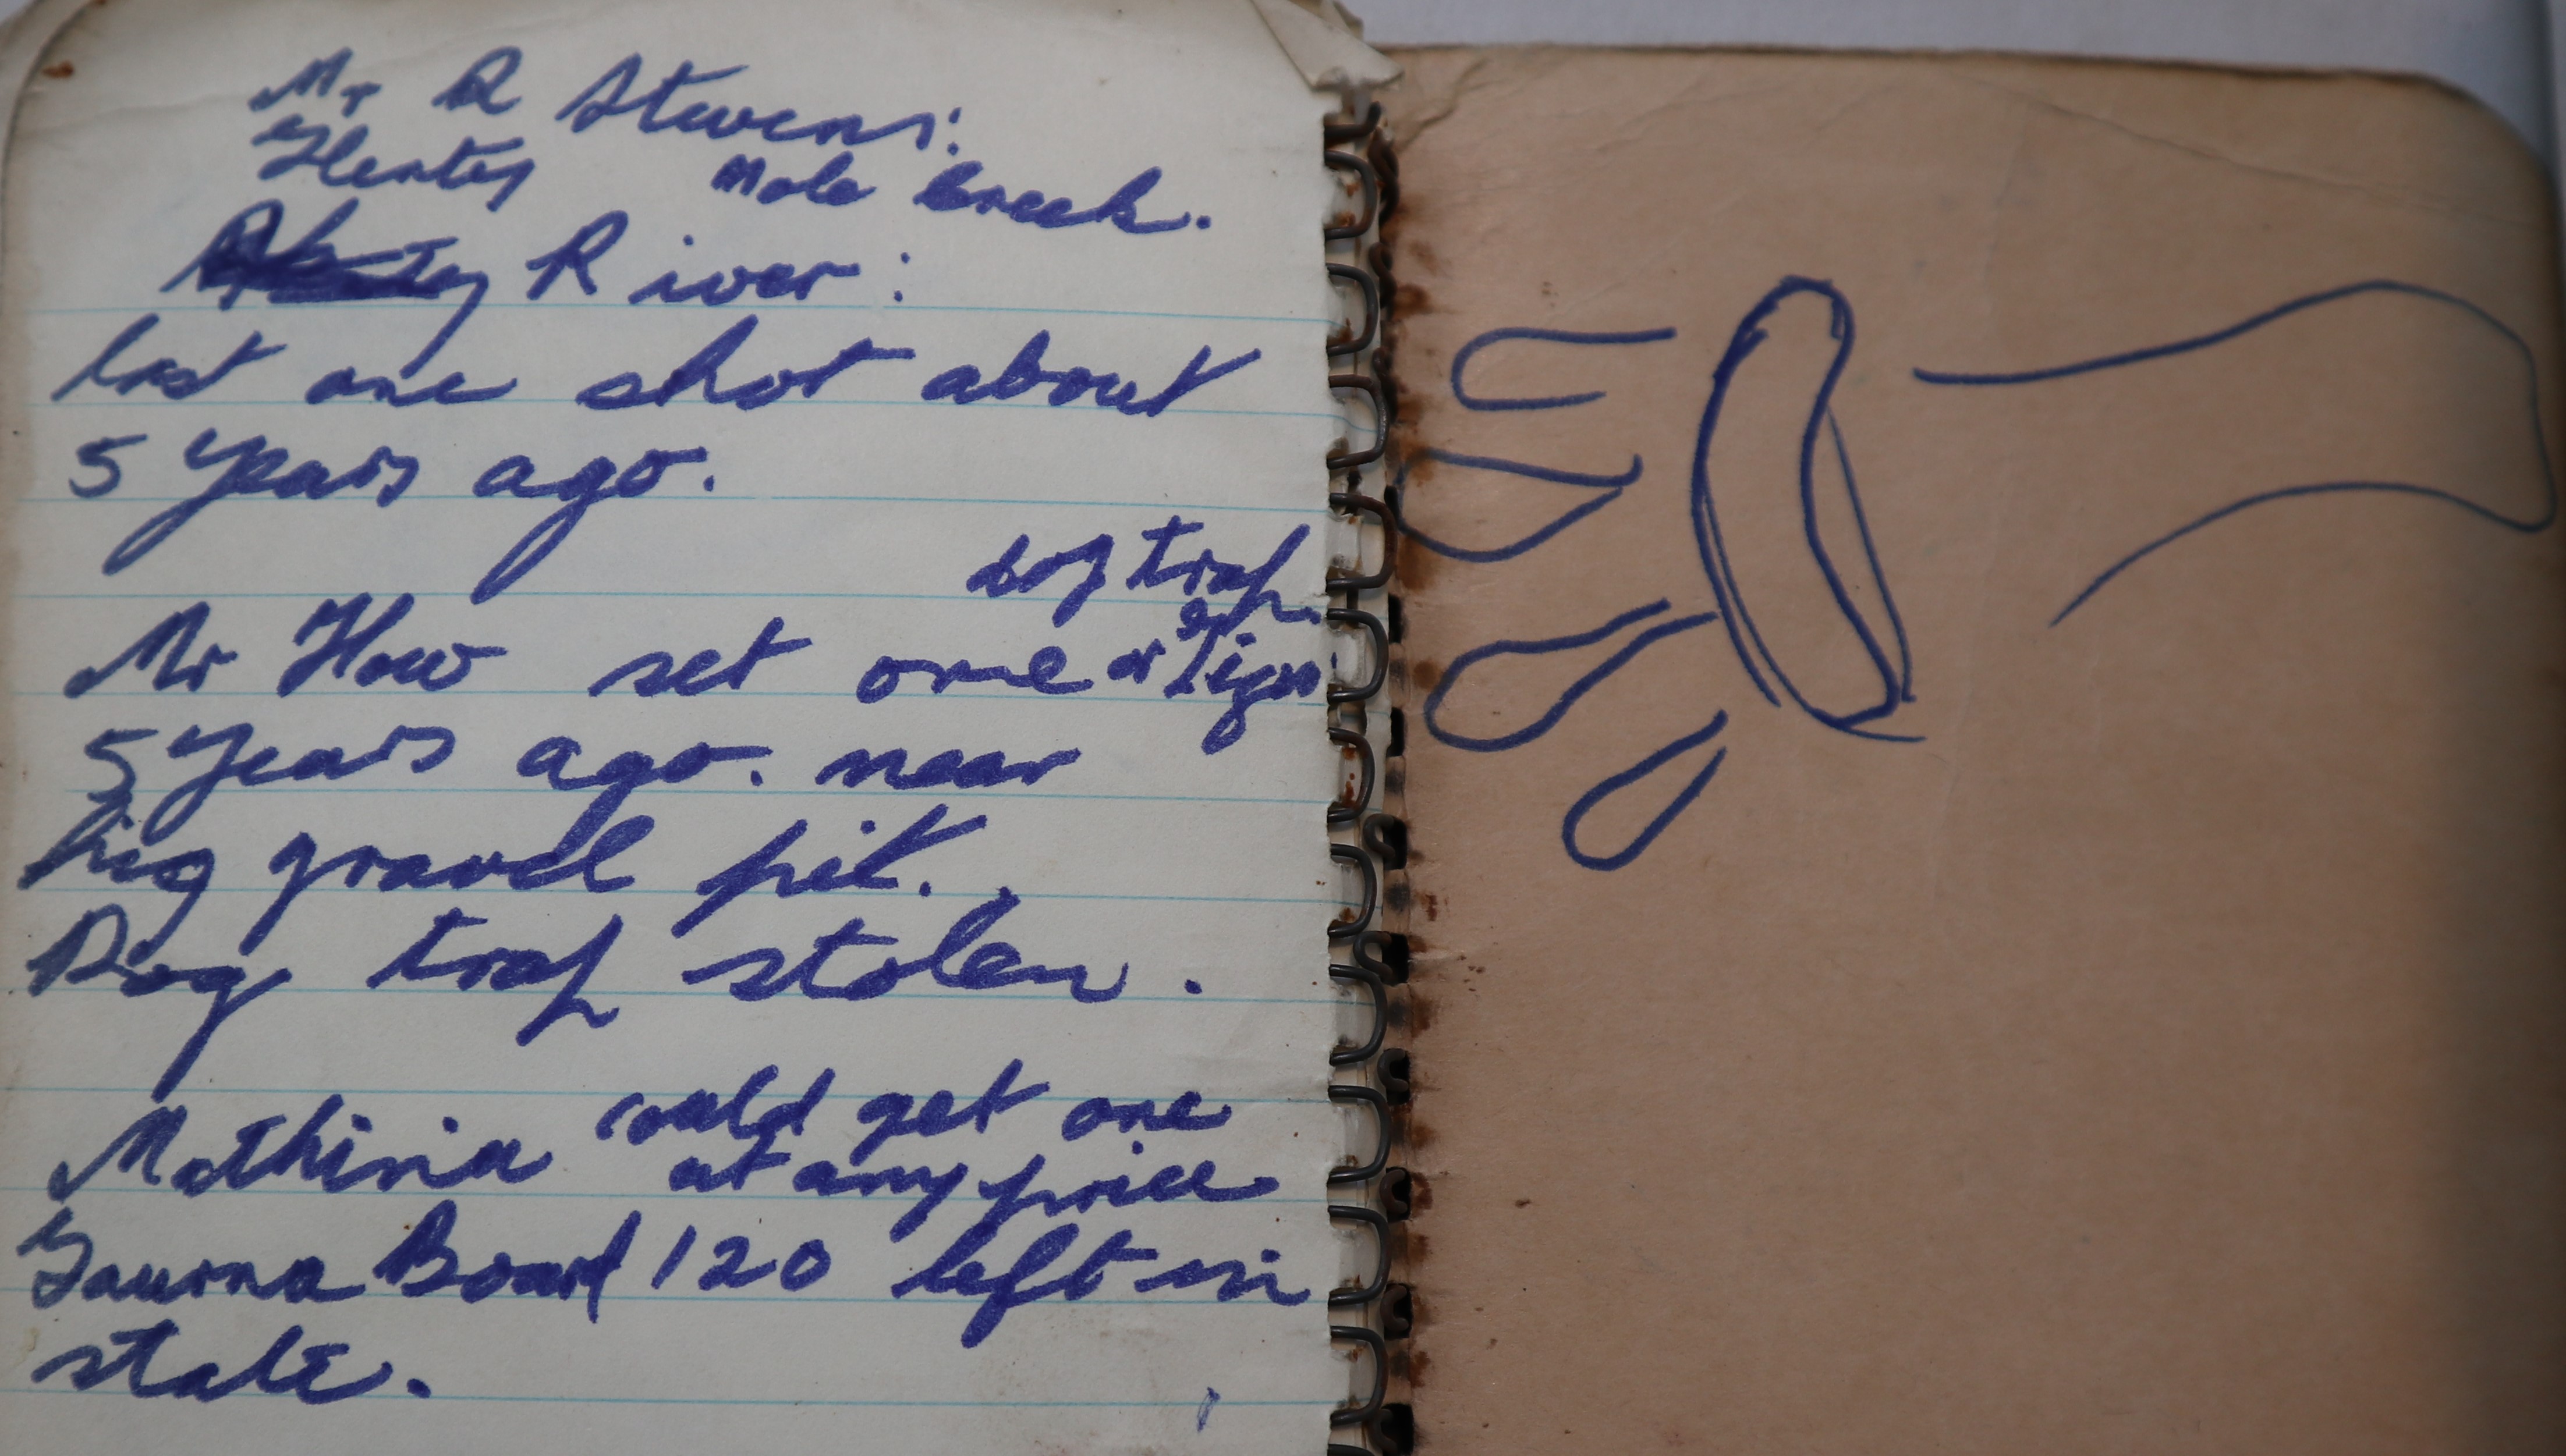 Mr R Stevens:
Mole Creek.
River:
last one shot about
5 years ago.
dog trap.
Mr How set one or 2 Tiger
5 years ago. near
big gravel pit.
Dog trap stolen.
could get one
Mathinna at any price
Fauna Board 120 left in
state.